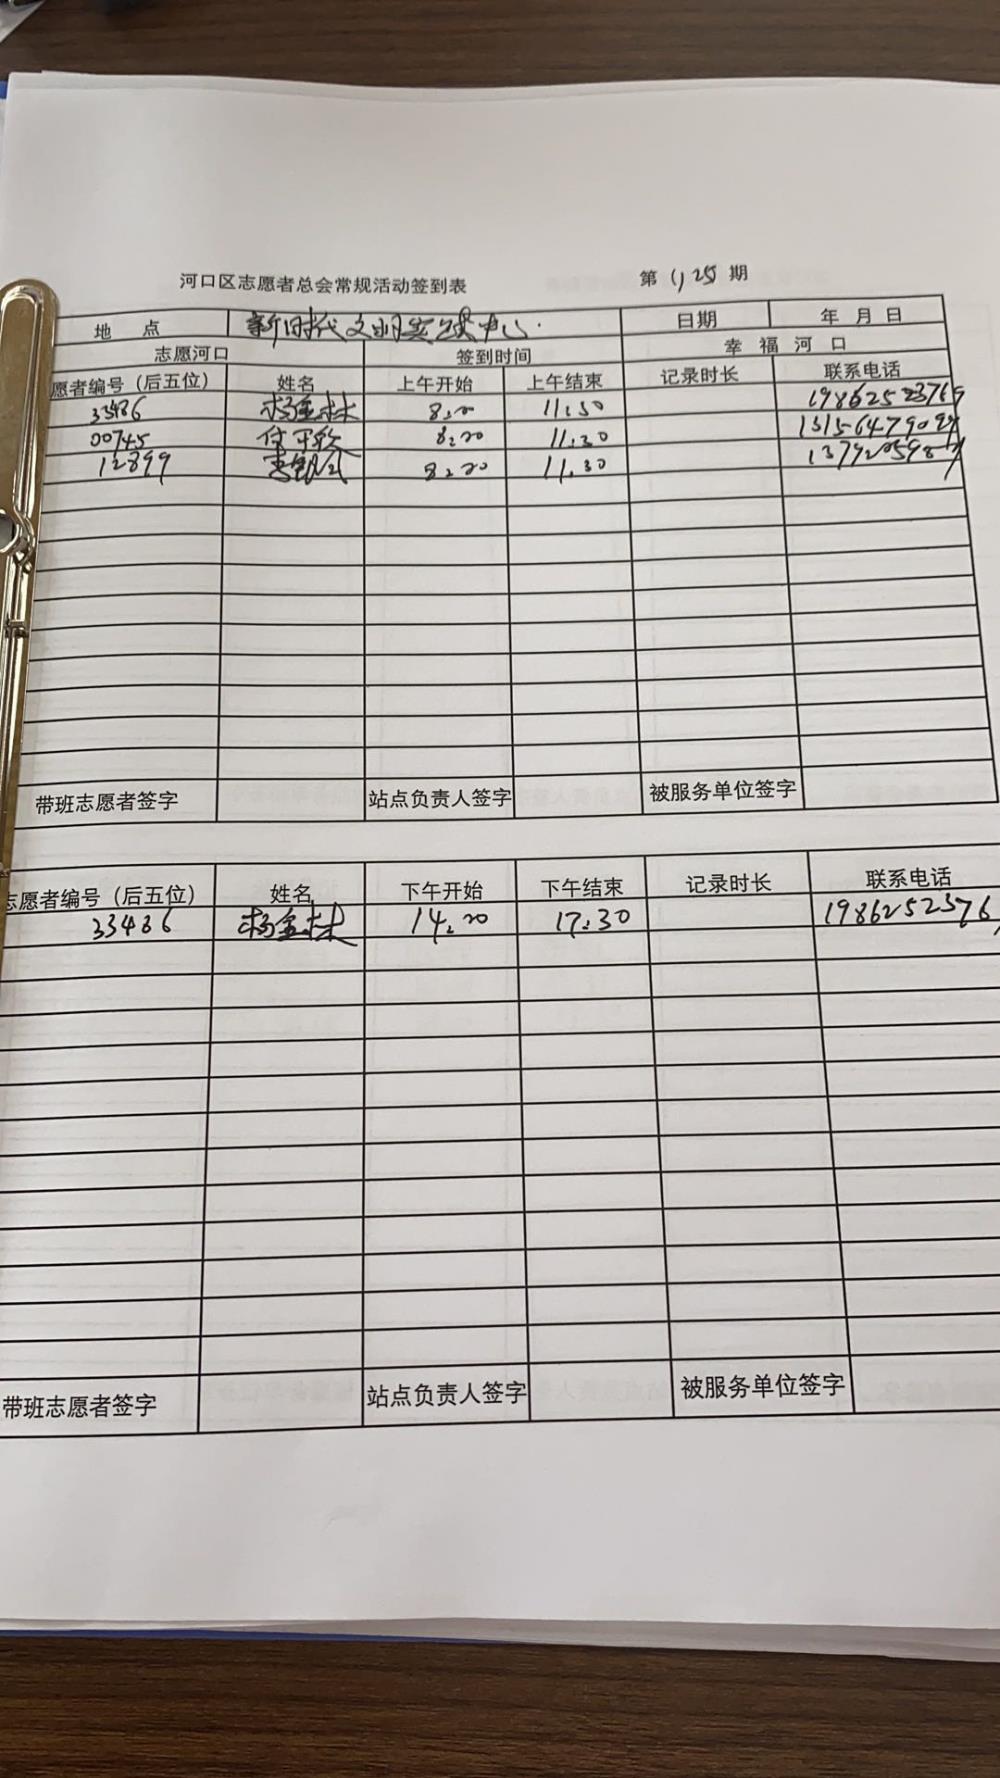 河口区志愿者总会常规活动签到表 第 期
地 点 新时代文明实践中心 日期 年 月 日
志愿河口 签到时间 幸 福 河 口
愿者编号（后五位） 姓名 上午开始 上午结束 记录时长 联系电话
33486 杨金林 8.20 11.30 19862523769
00745 8.20 11.30
12899 8.20 11.30
带班志愿者签字 站点负责人签字 被服务单位签字
志愿者编号（后五位） 姓名 下午开始 下午结束 记录时长 联系电话
33486 杨金林 14.20 17.30 1986252376
带班志愿者签字 站点负责人签字 被服务单位签字